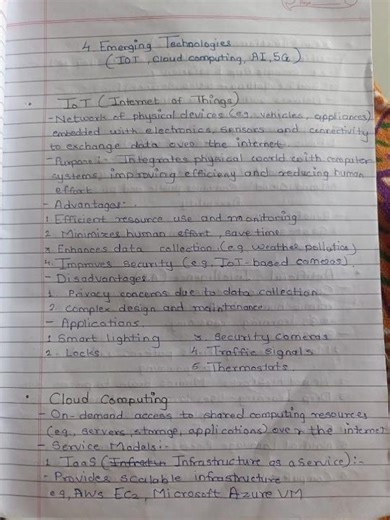 4. Emerging Technologies
(IOT, Cloud computing, AI, 5G)
• IoT (Internet of Things)
- Network of physical devices (e.g. vehicles, appliances)
embedded with electronics, sensors and connectivity
to exchange data over the internet.
- Purpose :- Integrates physical world with computer
systems, improving efficieny and reducing human
effort
- Advantages
1. Efficient resource use and monitoring
2. Minimizes human effort, save time
3. Enhances data collection (e.g. weather pollution)
4. Improves security (e.g. IoT-based cameras)
- Disadvantages
1. Privacy concerns due to data collection
2. Complex design and maintenance
- Applications
1. Smart lighting 3. Security Cameras
2. Locks 4. Traffic signals
5. Thermostats
• Cloud Computing
- On-demand access to shared computing resources
(eg., servers, storage, applications) over the internet
- Service Modals :-
1. IaaS (Infrastructure as a service) :-
- Provides scalable infrastructure
e.g, AWS EC2, Microsoft Azure VM